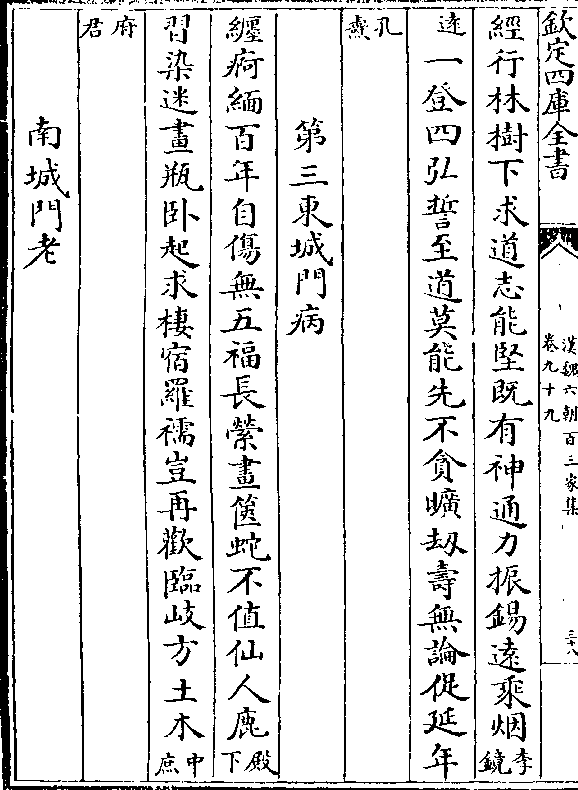 欽定四庫全書
漢魏六朝百三家集
卷九十九
三十八
經行林樹下求道志能堅既有神通力振錫遠乘烟李鏡
遠一登四弘誓至道莫能先不貪曠刼壽無論促延年
孔燾
第三東城門病
纏痾緬百年自傷無五福長縈畫篋蛇不值仙人鹿殿下
習染迷畫瓶卧起求棲宿羅襦豈再歡臨岐方土木中庶
府君
南城門老